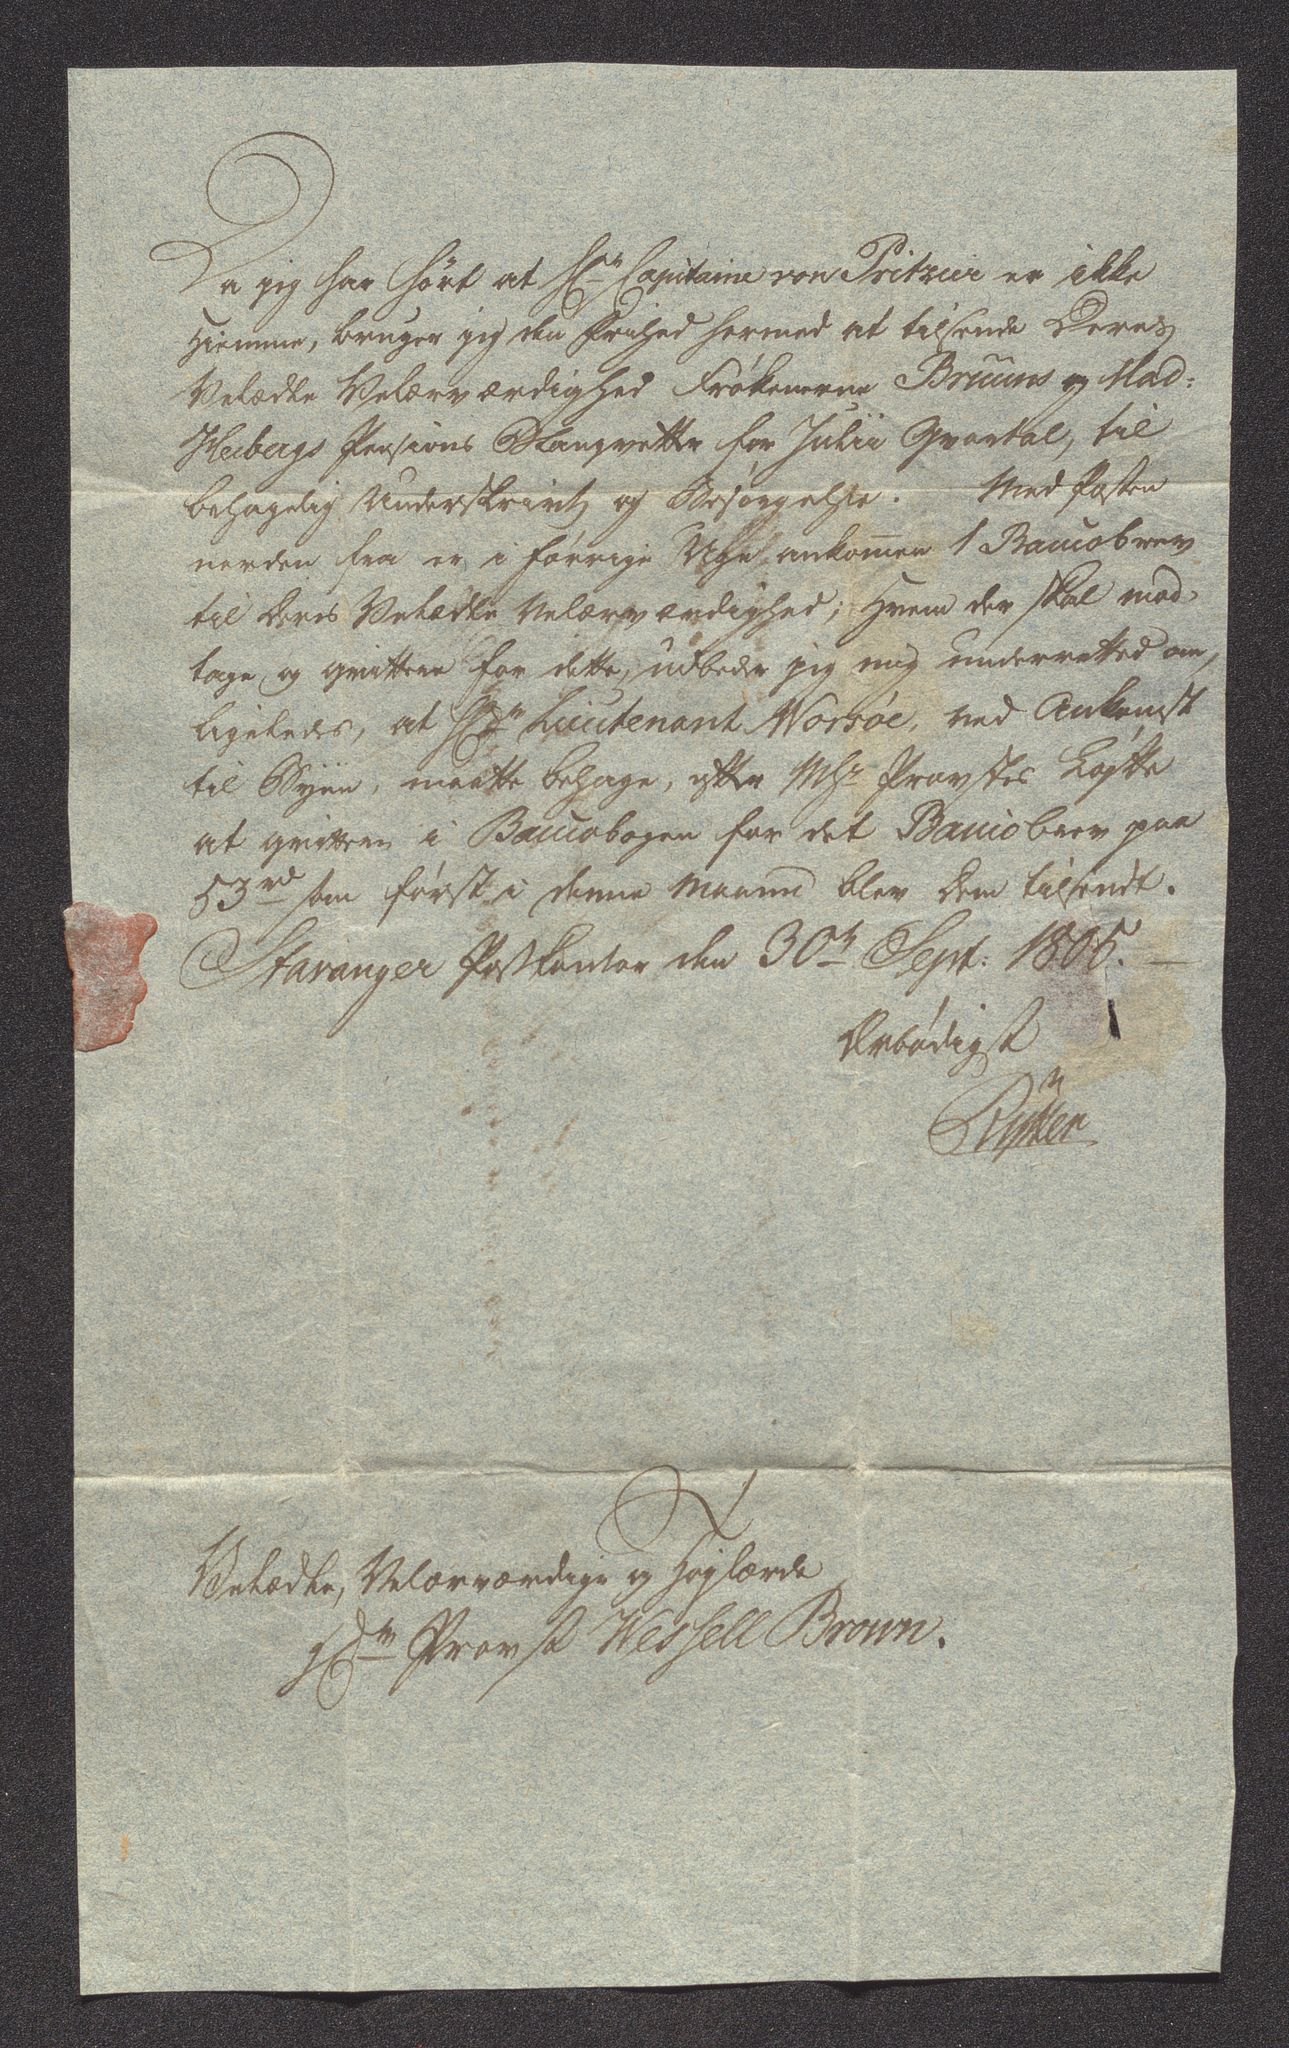 Da jeg har hört at Hr Capitaine von Pritzier er ikke
Hiemme, bruger jeg den Frihed hermed at tilsende Deres
Velædle Velærværdighed Frøkenerne Bruuns og Mad:
Heibergs Pensions Qvitter for Julii Qvartal, til
behagelig Underskrivt og Besörgelse. Med Posten
norden fra er i forrige Uge ankommen 1 Bancobrev
til Deres Velædle Velærværdighed; Hvem der skal mod-
tage og qvittere for dette, udbeder jeg mig underretted om,
ligeledes, at Hr Lieutenant Worsöe, ved Ankomst
til Byen, maatte behage, efter Hr Provstes Löfte
at qvittere i Bancobogen for det Bancobrev paa
53 rd som först i denne Maaned blev Dem tilsendt.
Stavanger Postkontor den 30te Sept: 1805.
Ærbödigst
Velædle, Velærværdige og Höylærde
Hr Provst Wessell Brown.